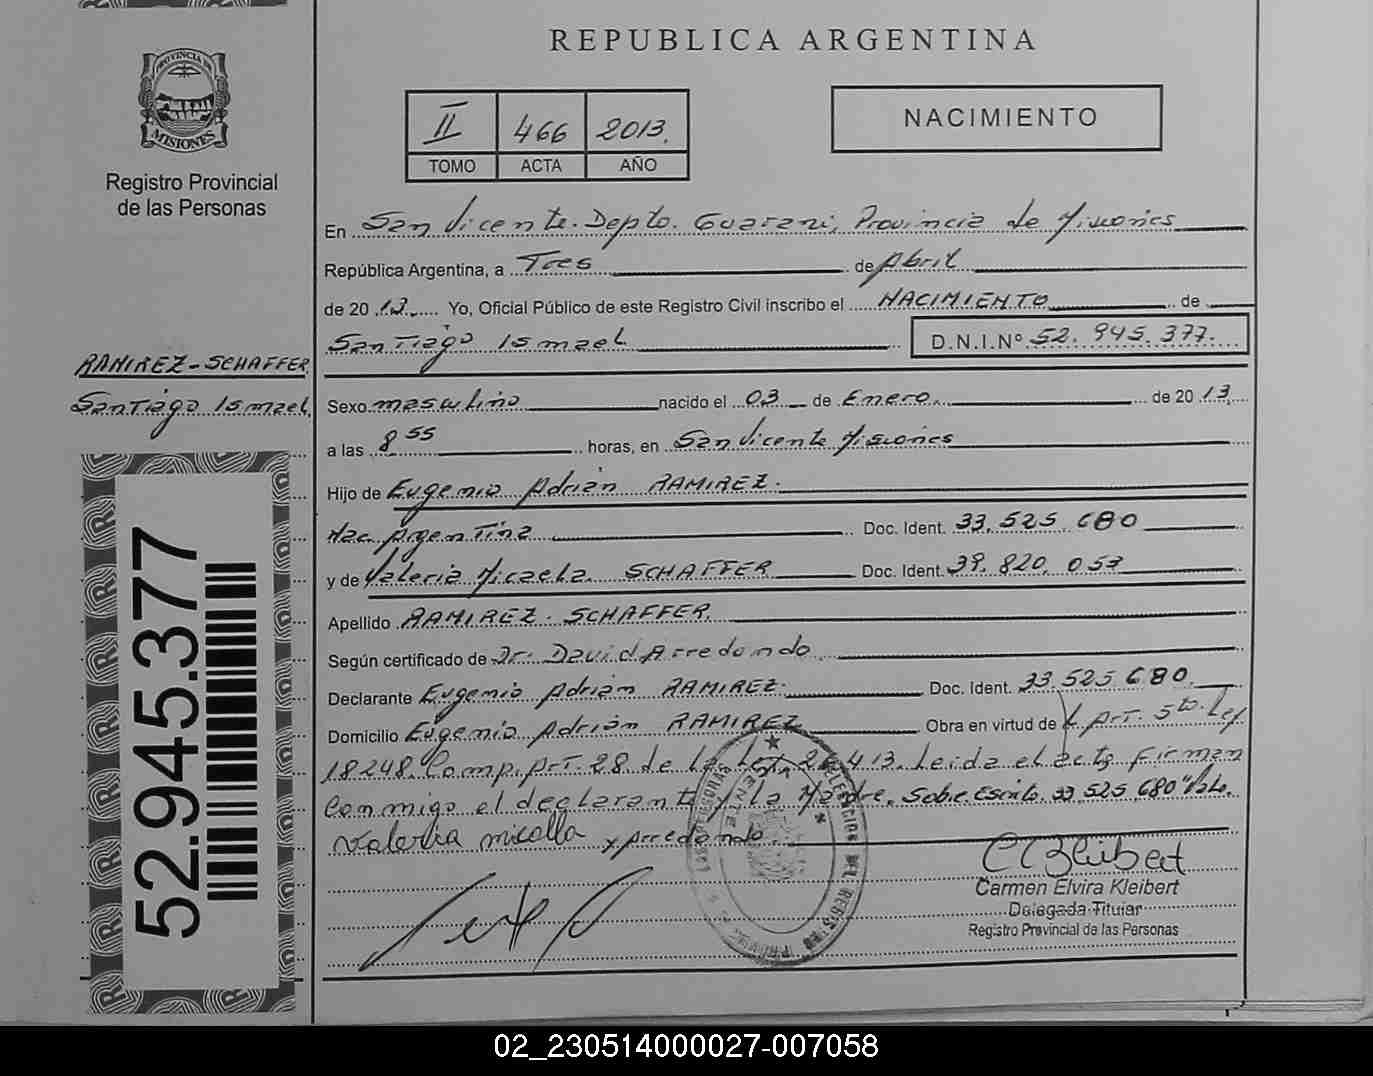 REPUBLICA ARGENTINA
PROVINCIA DE
MISIONES
Registro Provincial
de las Personas
II 466 2013.
TOMO ACTA AÑO
NACIMIENTO
En San Vicente. Depto. Guarani, Provincia de Misiones
República Argentina, a Tres de Abril
de 20 13. Yo, Oficial Público de este Registro Civil inscribo el NACIMIENTO de
Santiago Ismael D.N.I.Nº 52.945.377.
RAMIREZ-SCHAFFER
Santiago Ismael
Sexo masculino nacido el 03 de Enero. de 20 13.
a las 8 55 horas, en San Vicente Misiones
Hijo de Eugenio Adrián RAMIREZ.
Nac. Argentina Doc. Ident. 33.525.680
y de Valeria Micaela SCHAFFER Doc. Ident. 39.820.053
Apellido RAMIREZ. SCHAFFER.
Según certificado de Dr. David Arredondo
Declarante Eugenio Adrián RAMIREZ. Doc. Ident. 33.525.680.
Domicilio Eugenio Adrián RAMIREZ Obra en virtud de Art. 5to. Ley
18248. Comp. Art. 28 de la Ley 413. Leida el acta firman
conmigo el declarante y la Madre. Sobre Escrito. 33.525.680" Vale.
Valeria micalla y Arredondo.
CEKleibert
Carmen Elvira Kleibert
Delegada Titular
Registro Provincial de las Personas
52.945.377
02_230514000027-007058